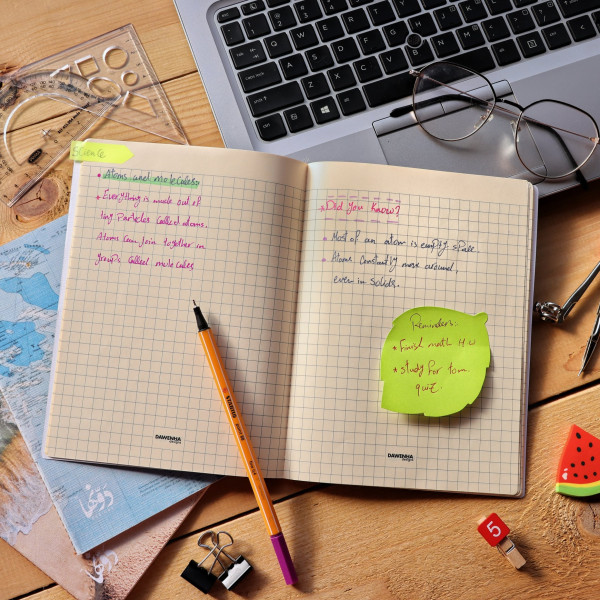 Science
* Atoms and molecules
* Everything is made out of
tiny particles called atoms.
Atoms can join together in
groups called molecules
* Did you know?
* Most of an atom is empty space.
* Atoms constantly move around,
even in solids.
Reminders:
* Finish math H.W
* study for tom
quiz.
DAWENHA
designs
DAWENHA
designs
STABILO
5